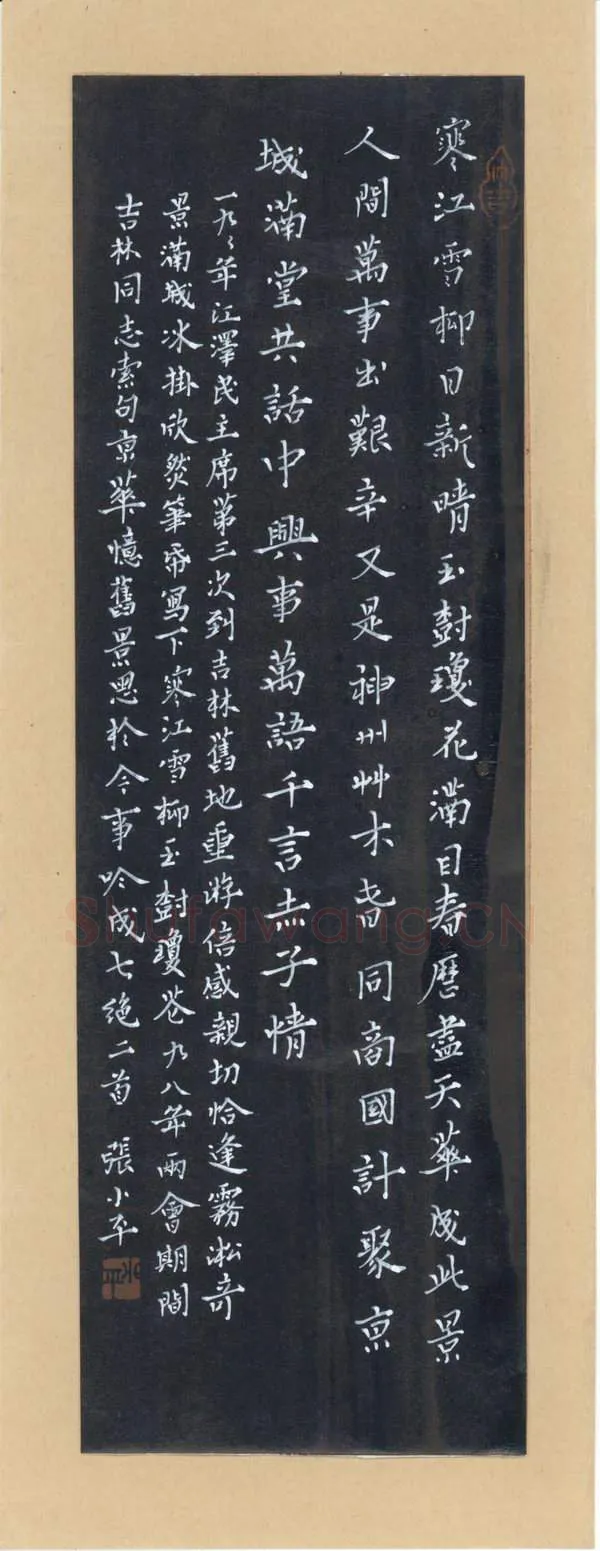 寒江雪柳日新晴玉樹瓊花滿目春歷盡天華成此景
人間萬事出艱辛又是神州艸木春同商國計聚京
城滿堂共話中興事萬語千言赤子情
一九九〻年江澤民主席第三次到吉林舊地重游倍感親切恰逢霧淞奇
景滿城冰掛欣然筆帋寫下寒江雪柳玉樹瓊花九八年兩會期間
吉林同志索句京華憶舊景思於今事吟成七絕二首 張小平
小平
ShufaWang.CN